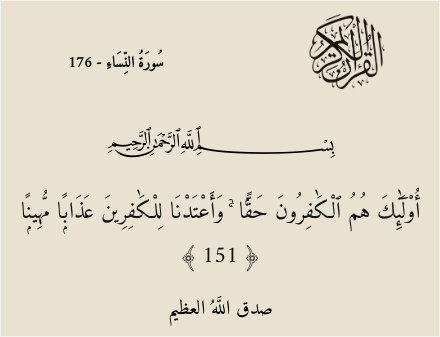 القرآن الكريم
سُورَةُ النِّسَاءِ - 176
بِسْمِ ٱللَّهِ ٱلرَّحْمَٰنِ ٱلرَّحِيمِ
أُوْلَٰٓئِكَ هُمُ ٱلْكَٰفِرُونَ حَقًّۭا ۚ وَأَعْتَدْنَا لِلْكَٰفِرِينَ عَذَابًۭا مُّهِينًۭا
﴿ 151 ﴾
صدق اللَّهُ العظيم